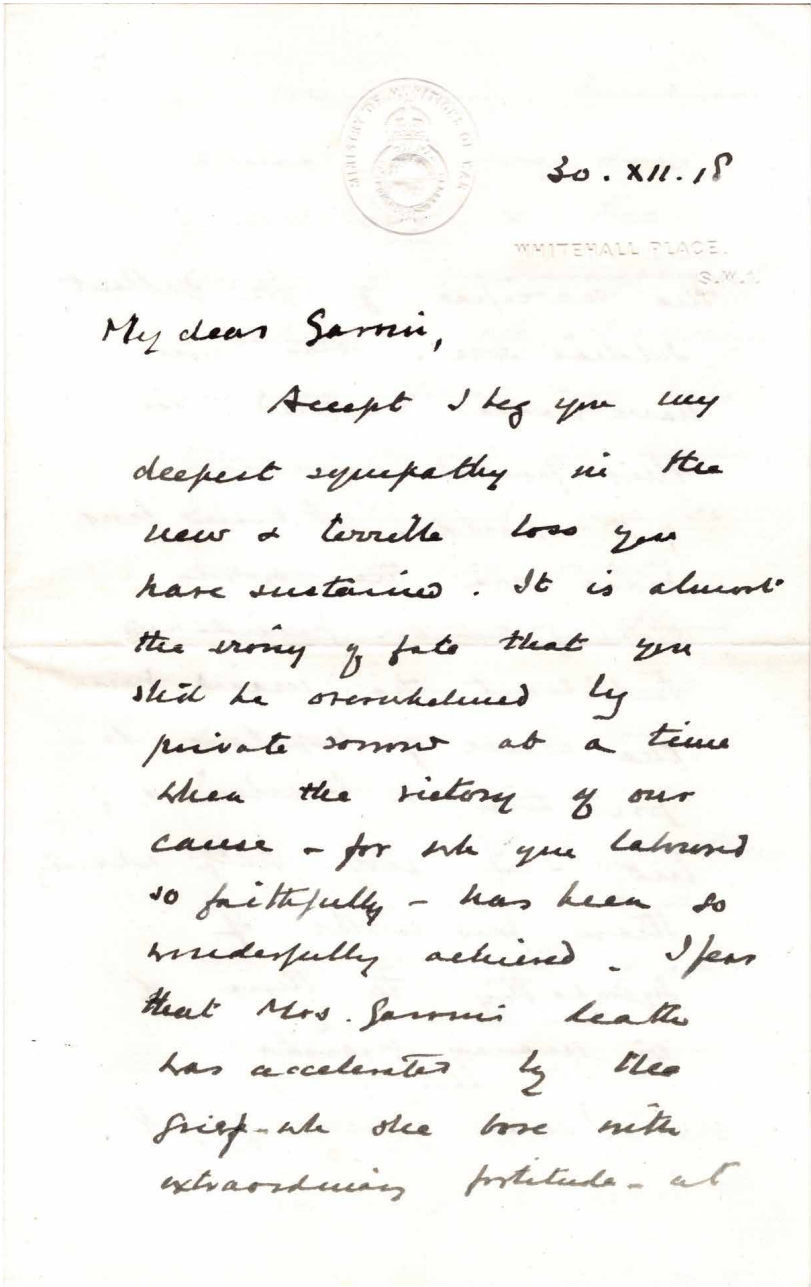 MINISTRY OF MUNITIONS OF WAR
30. XII. 18
WHITEHALL PLACE.
S.W.1
My dear Garvin,
Accept I beg you my
deepest sympathy in the
new & terrible loss you
have sustained. It is almost
the irony of fate that you
shd be overwhelmed by
private sorrow at a time
when the victory of our
cause - for wh you laboured
so faithfully - has been so
wonderfully achieved. I fear
that Mrs. Garvin's death
was accelerated by the
grief - wh she bore with
extraordinary fortitude - at